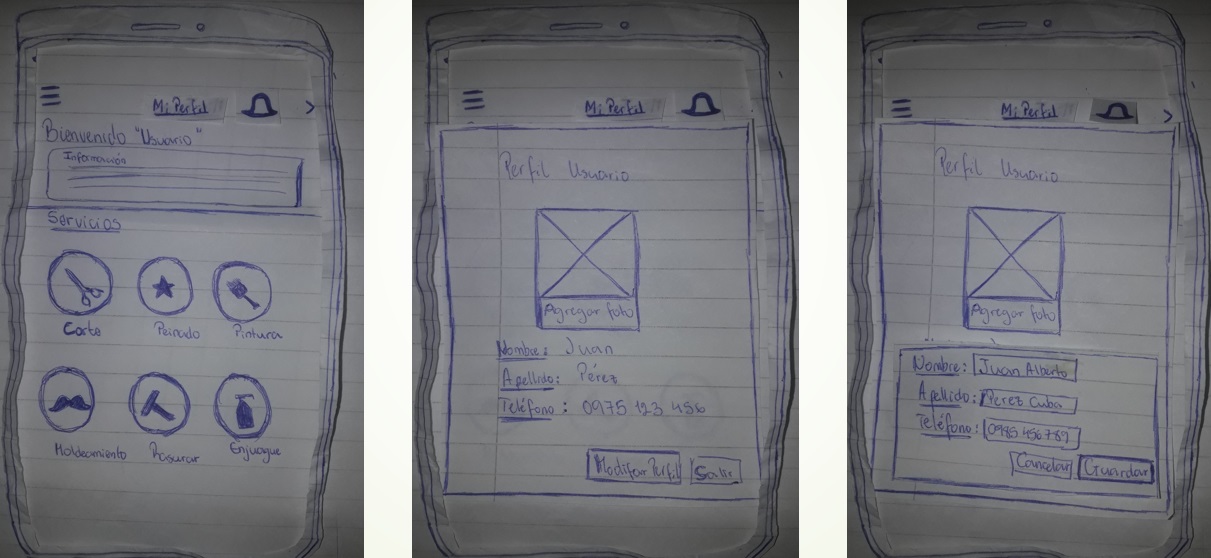 Mi Perfil
Bienvenido "Usuario"
Información
Servicios
Corte Peinado Pintura
Moldeamiento Rasurar Enjuague
Mi Perfil
Perfil Usuario
Agregar foto
Nombre: Juan
Apellido: Pérez
Teléfono: 0975 123 456
Modificar Perfil Salir
Mi Perfil
Perfil Usuario
Agregar foto
Nombre: Juan Alberto
Apellido: Perez Cuba
Teléfono: 0985 456 789
Cancelar Guardar